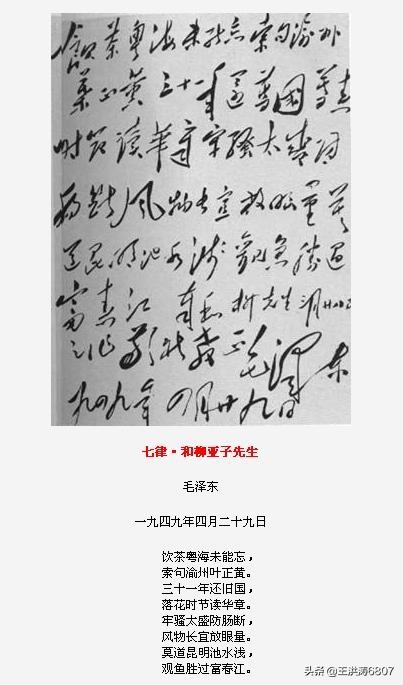 飲茶粵海未能忘索句渝州
葉正黃三十一年還舊國落花
時節讀華章牢騷太盛防
腸斷風物長宜放眼量莫
道昆明池水淺觀魚勝過
富春江 奉和柳先生三月廿八日
之作敬祈教正 毛澤東
一九四九年四月廿九日
七律·和柳亚子先生
毛泽东
一九四九年四月二十九日
饮茶粤海未能忘，
索句渝州叶正黄。
三十一年还旧国，
落花时节读华章。
牢骚太盛防肠断，
风物长宜放眼量。
莫道昆明池水浅，
观鱼胜过富春江。
头条 @王洪涛6807